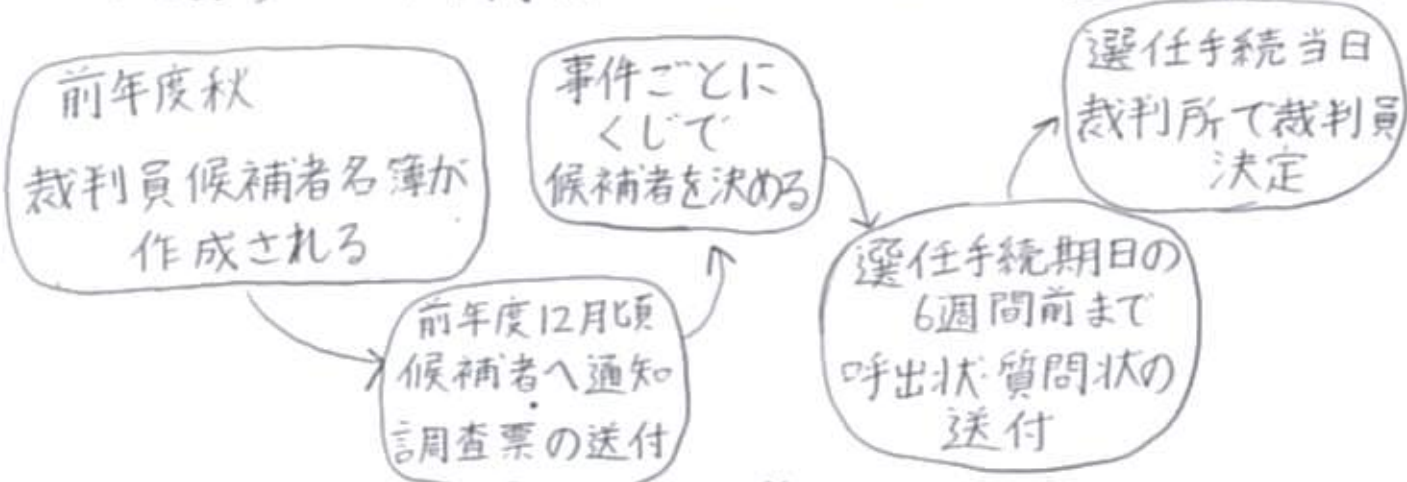 前年度秋
裁判員候補者名簿が
作成される
前年度12月頃
候補者へ通知
・
調査票の送付
事件ごとに
くじで
候補者を決める
選任手続期日の
6週間前まで
呼出状・質問状の
送付
選任手続当日
裁判所で裁判員
決定